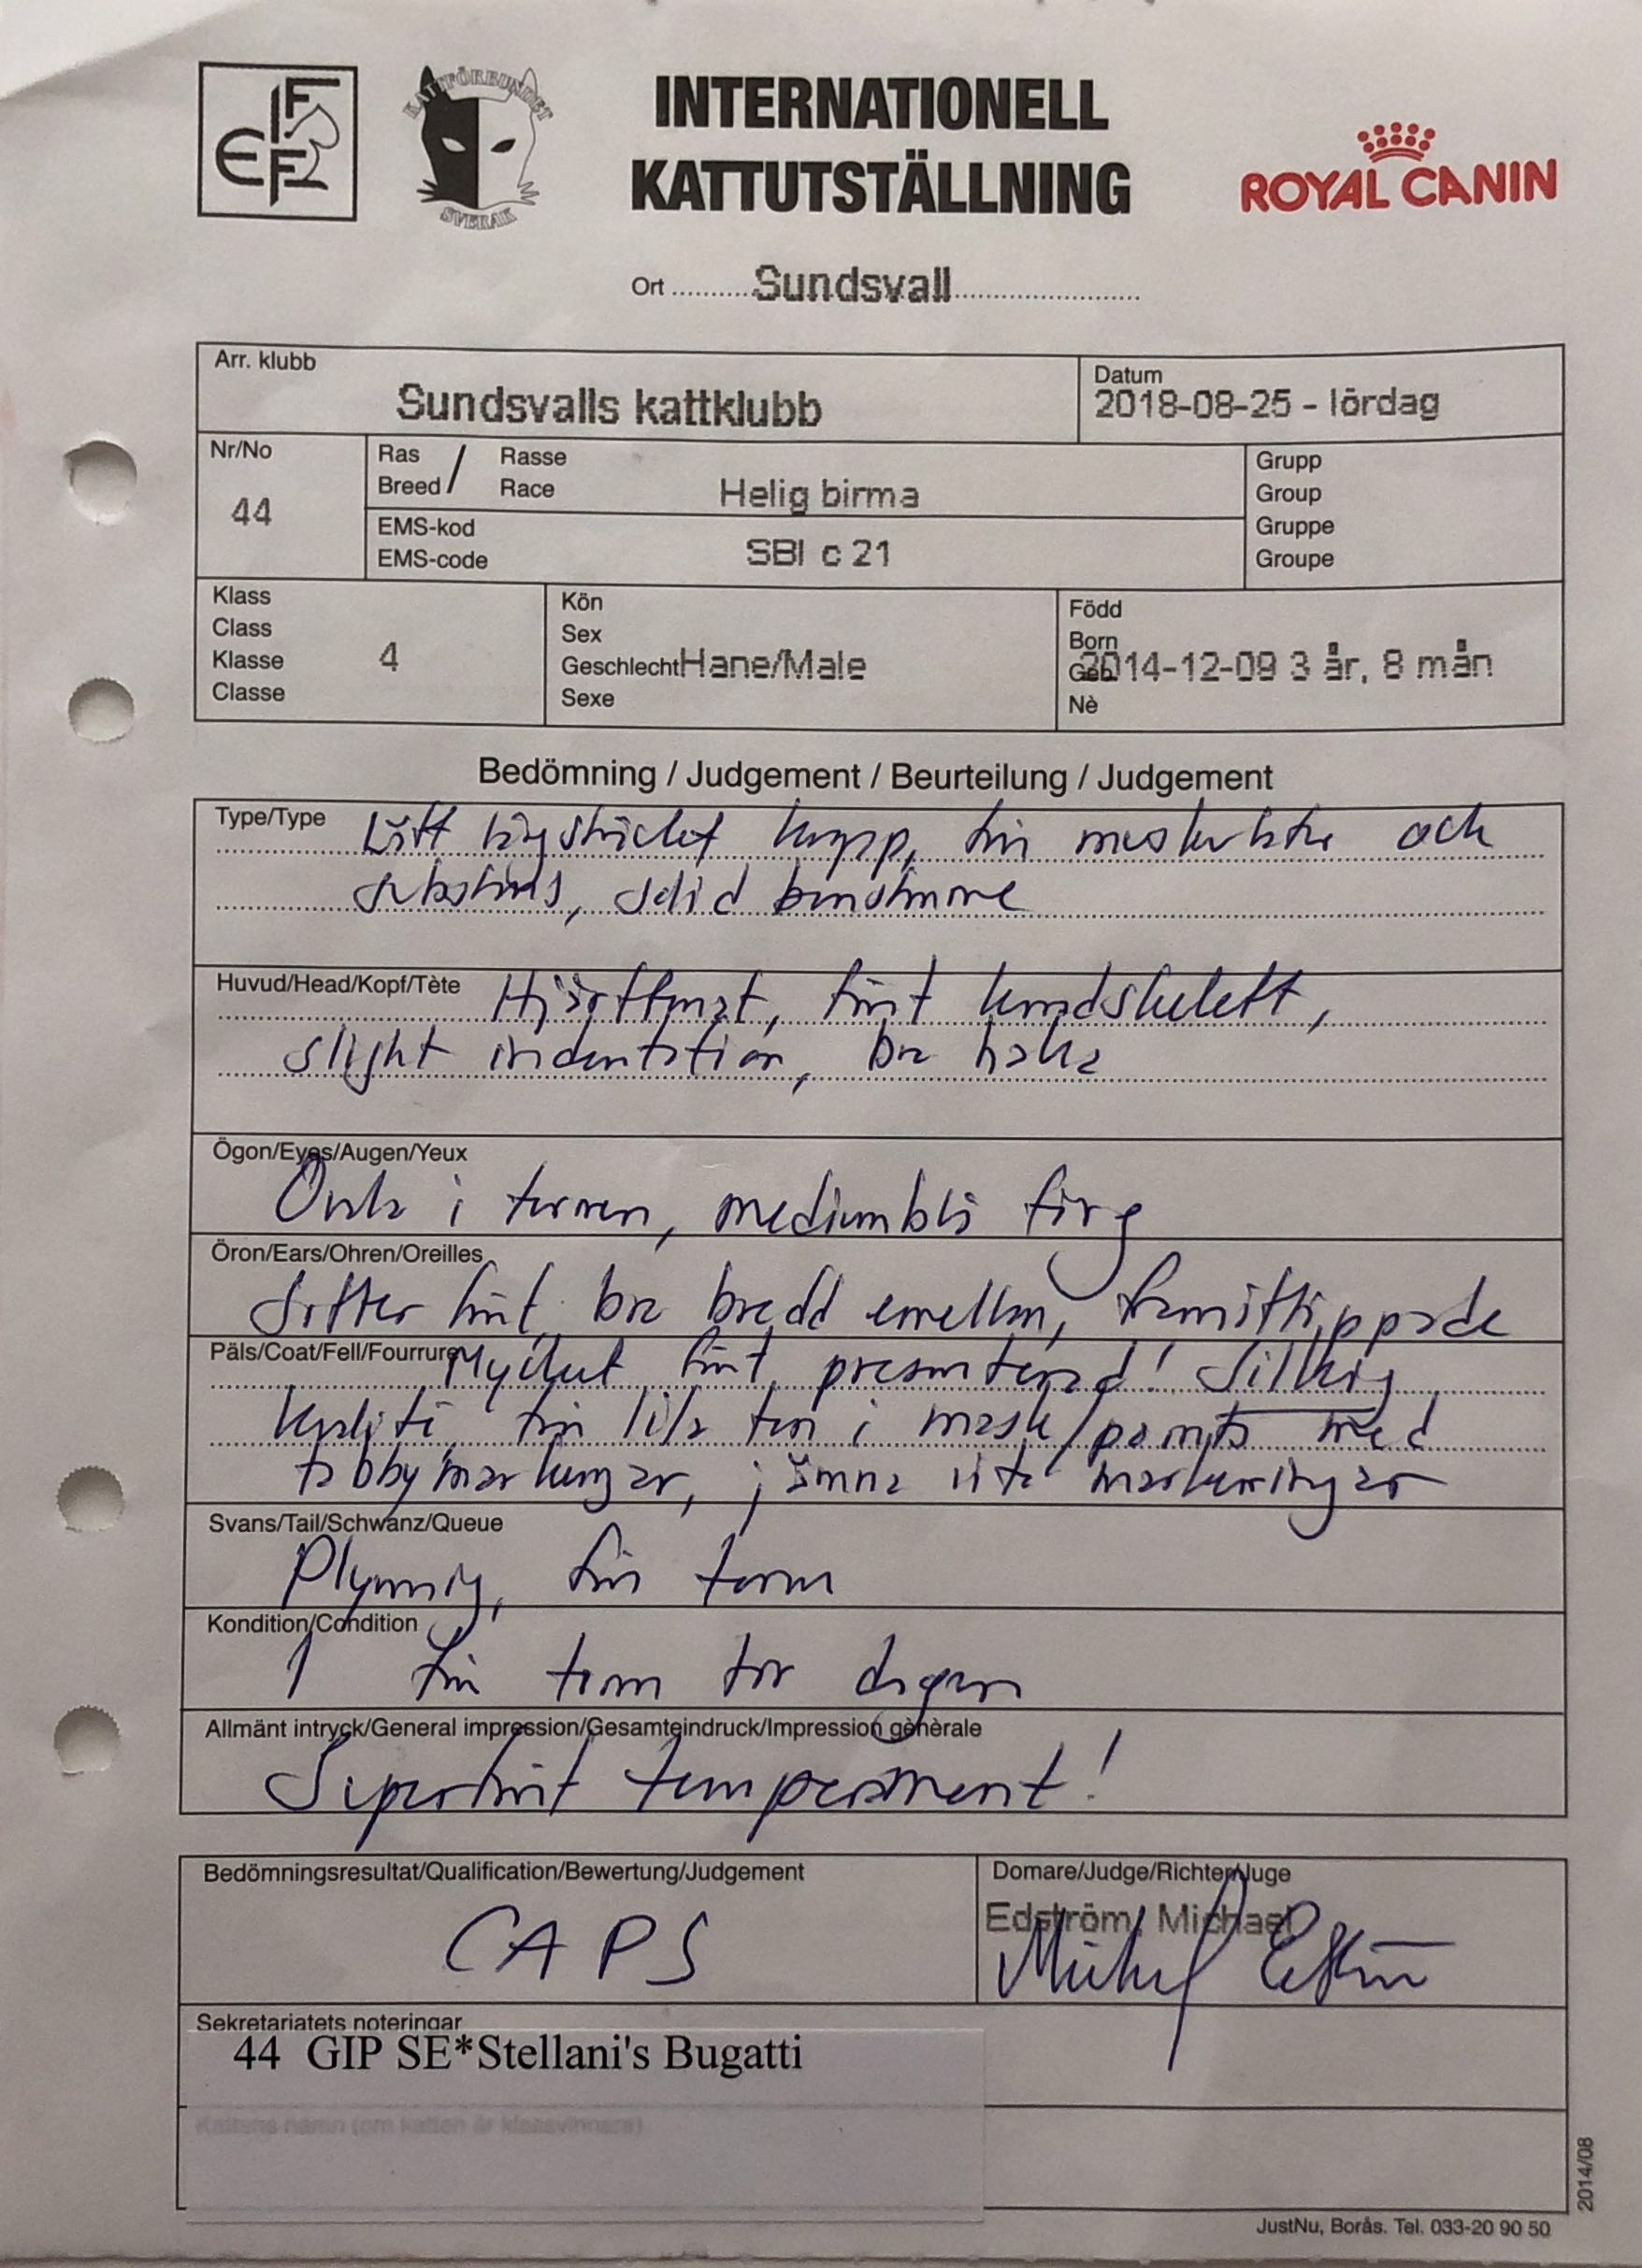 FIFe
KATTFÖRBUNDET
SVERAK
INTERNATIONELL
KATTUTSTÄLLNING
ROYAL CANIN
Ort Sundsvall
Arr. klubb
Sundsvalls kattklubb
Datum
2018-08-25 - lördag
Nr/No
44
Ras / Rasse
Breed / Race
Helig birma
EMS-kod
EMS-code
SBI c 21
Grupp
Group
Gruppe
Groupe
Klass
Class
Klasse
Classe
4
Kön
Sex
Geschlecht Hane/Male
Sexe
Född
Born
Geb
2014-12-09 3 år, 8 mån
Nè
Bedömning / Judgement / Beurteilung / Judgement
Type/Type Lätt långsträckt kropp, fin muskulatur och
substans, solid benstomme
Huvud/Head/Kopf/Tète Hjärtformat, fint
slight indentation, bra haka
Ögon/Eyes/Augen/Yeux
Ovala i formen, mediumblå färg
Öron/Ears/Ohren/Oreilles
Sitter fint, bra bredd emellan, framåttippade
Päls/Coat/Fell/Fourrure Mycket fint presenterad! Silkig
kvalité, fin lila ton i mask/points med
tabbymarkeringar, jämna vita markeringar
Svans/Tail/Schwanz/Queue
Plymig, fin form
Kondition/Condition
I fin form för dagen
Allmänt intryck/General impression/Gesamteindruck/Impression gènèrale
Superfint temperament!
Bedömningsresultat/Qualification/Bewertung/Judgement
CAPS
Domare/Judge/Richter/Juge
Edström, Michael
Michael Edström
Sekretariatets noteringar
44 GIP SE*Stellani's Bugatti
Kattens namn (om katten är klassvinnare)
2014/08
JustNu, Borås. Tel. 033-20 90 50